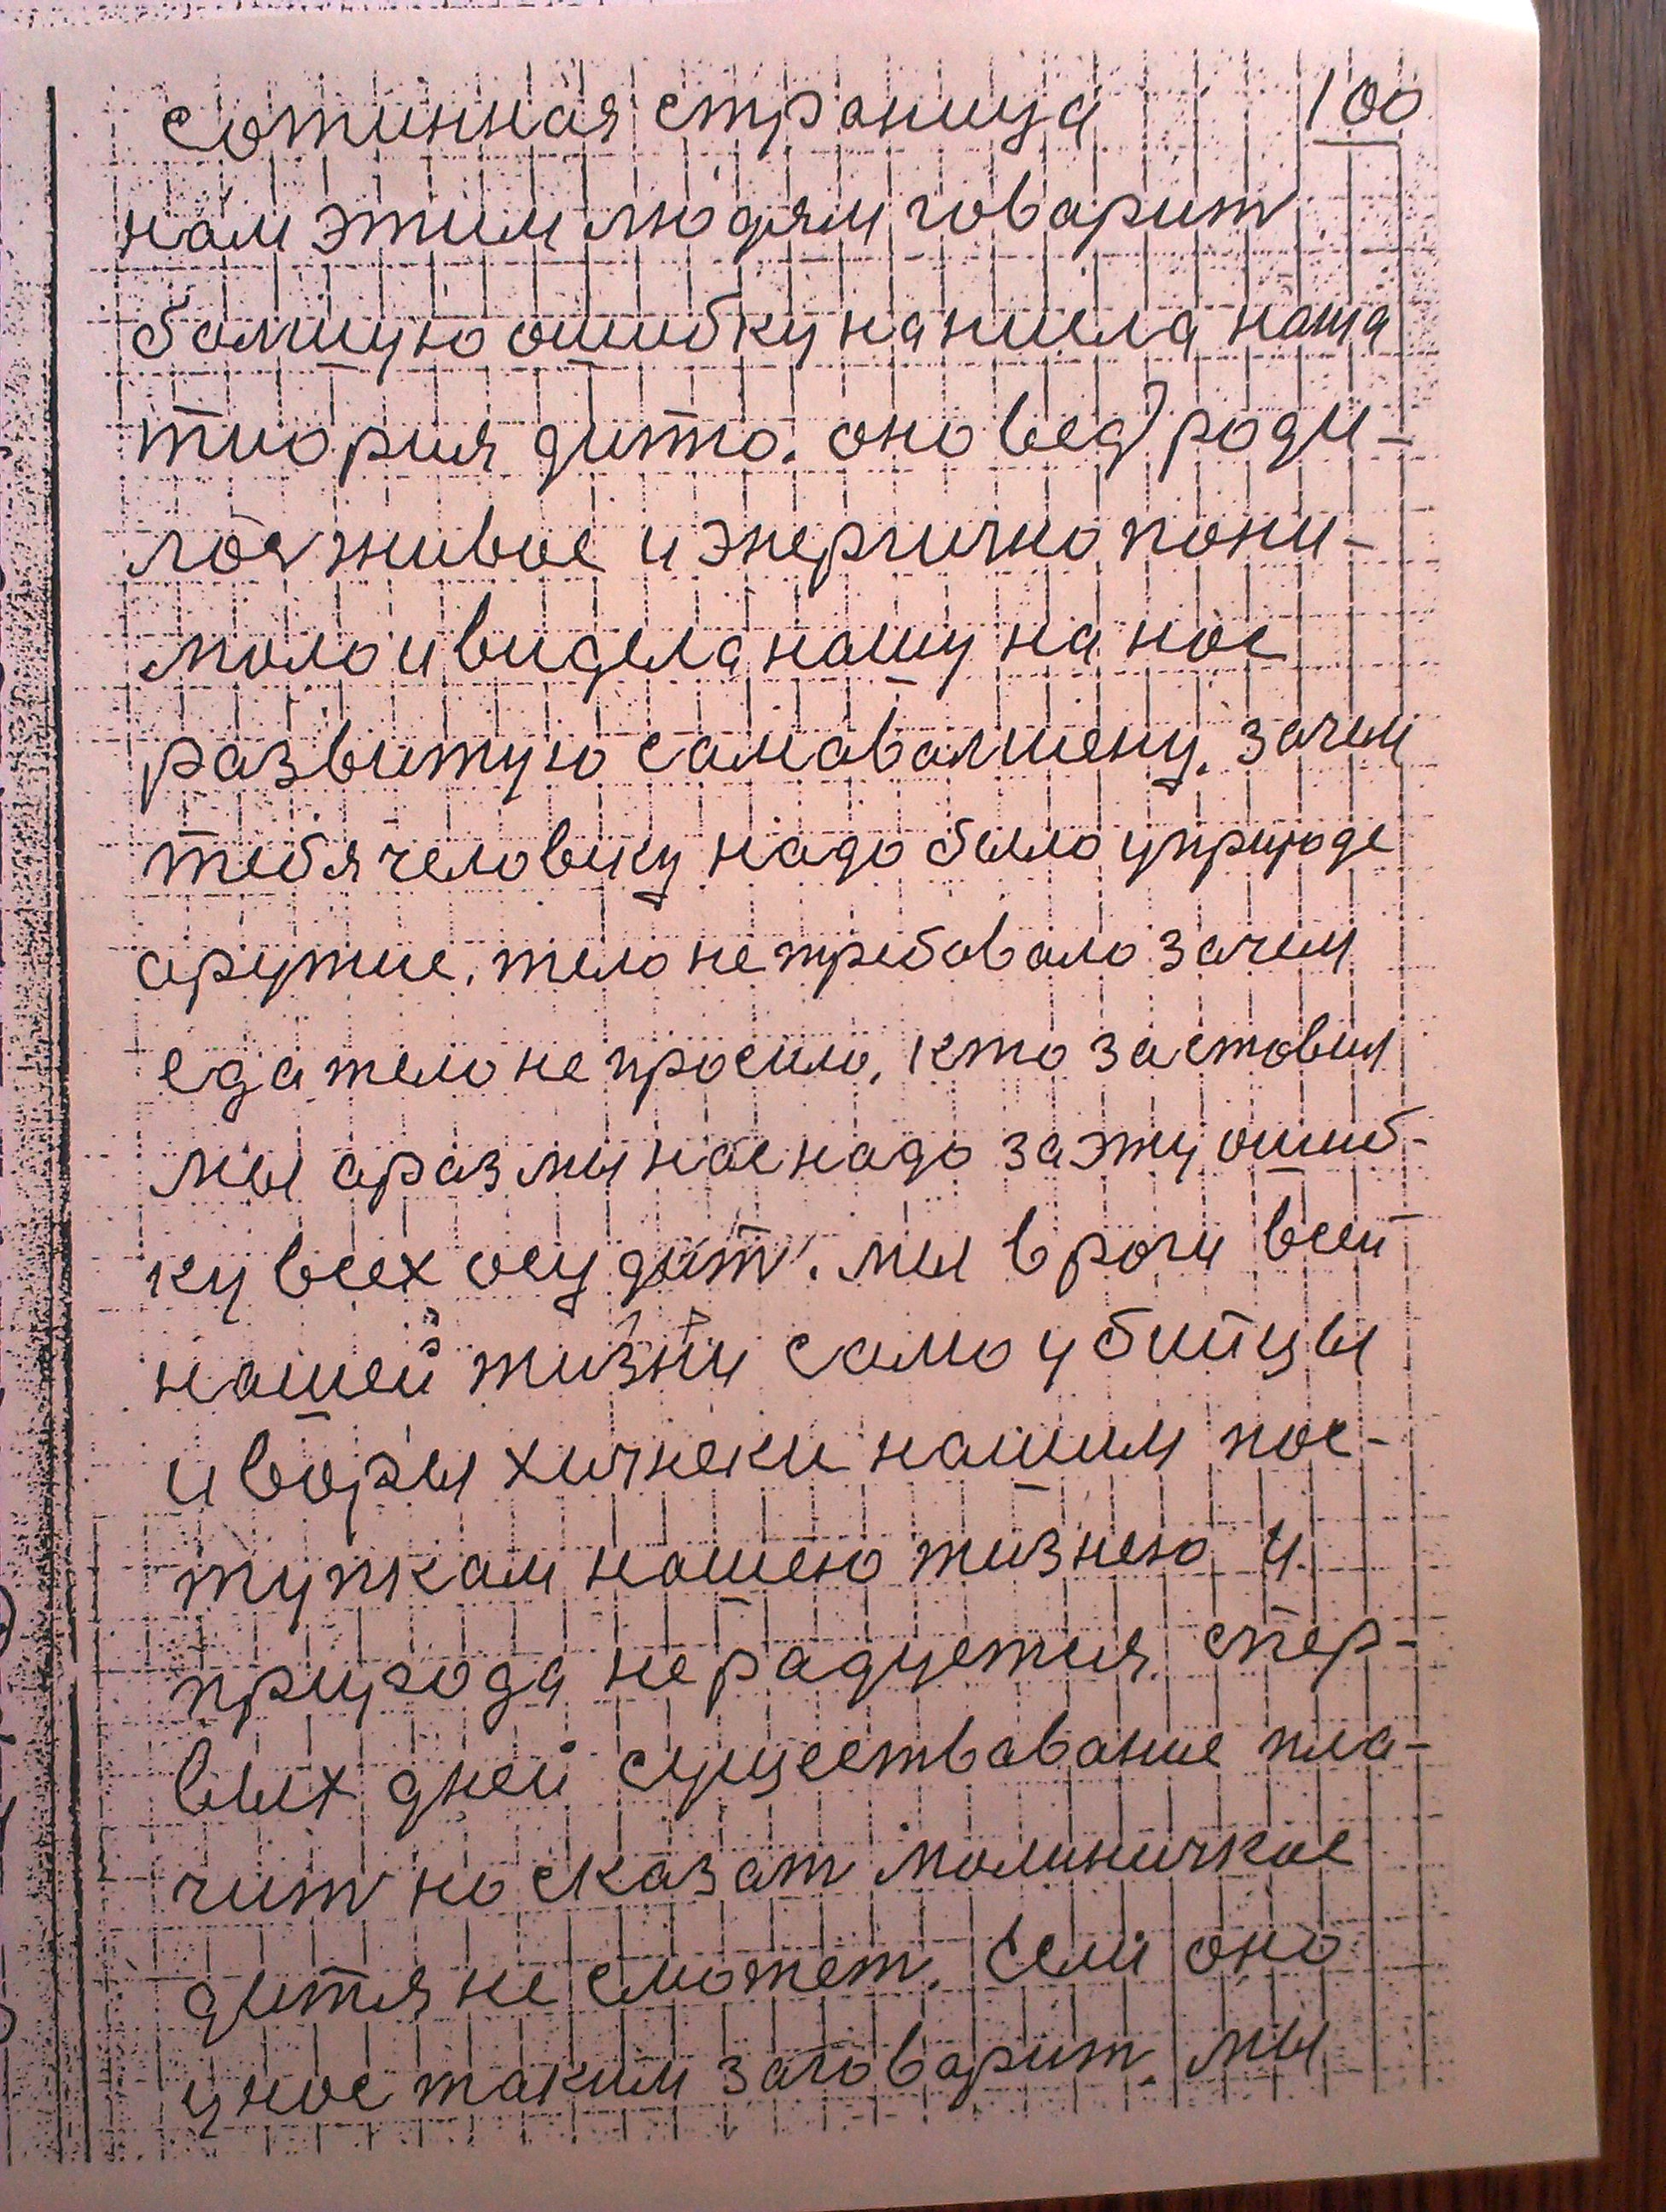 сотинная страница 100
нам этим людям говарит
балшую ошибку нашла наша
тиория дито. оно вед роди-
лос живое и энергично пони-
мало и видела нашу на нас
развитую самавалшену. зачем
тебя человеку надо было уприроде
арутие. тело не требовало зачем
еда тело не просило, кто заставил
мы а раз мы нас надо за эту ошиб-
ку всех осудит. мы враги всей
нашей жизни само убийцы
и воры хичнеки нашим пос-
тупкам нашею жизнею и
природа не радуется. спер-
вых дней существавание пла-
чит но сказат малиничкое
дитя не сможет. Если оно
унас таким заговарит. мы